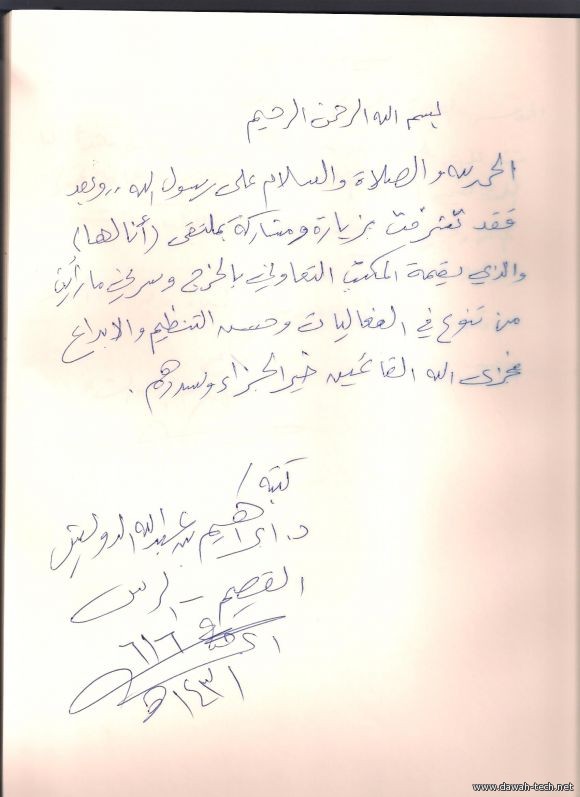 بسم الله الرحمن الرحيم
الحمد لله والصلاة والسلام على رسول الله .. وبعد
فقد تشرفت بزيارة ومشاركة بملتقى (أنا لها)
والذي يقيمه المكتب التعاوني بالخرج وسرني ما رأيت
من تنوع في الفعاليات وحسن التنظيم والابداع
فجزى الله القائمين خير الجزاء وسددهم .
كتبه /
د. ابراهيم بن عبدالله الدويش
القصيم - الرس
في ٦/١٦
١٤٣١هـ
www.dawah-tech.net